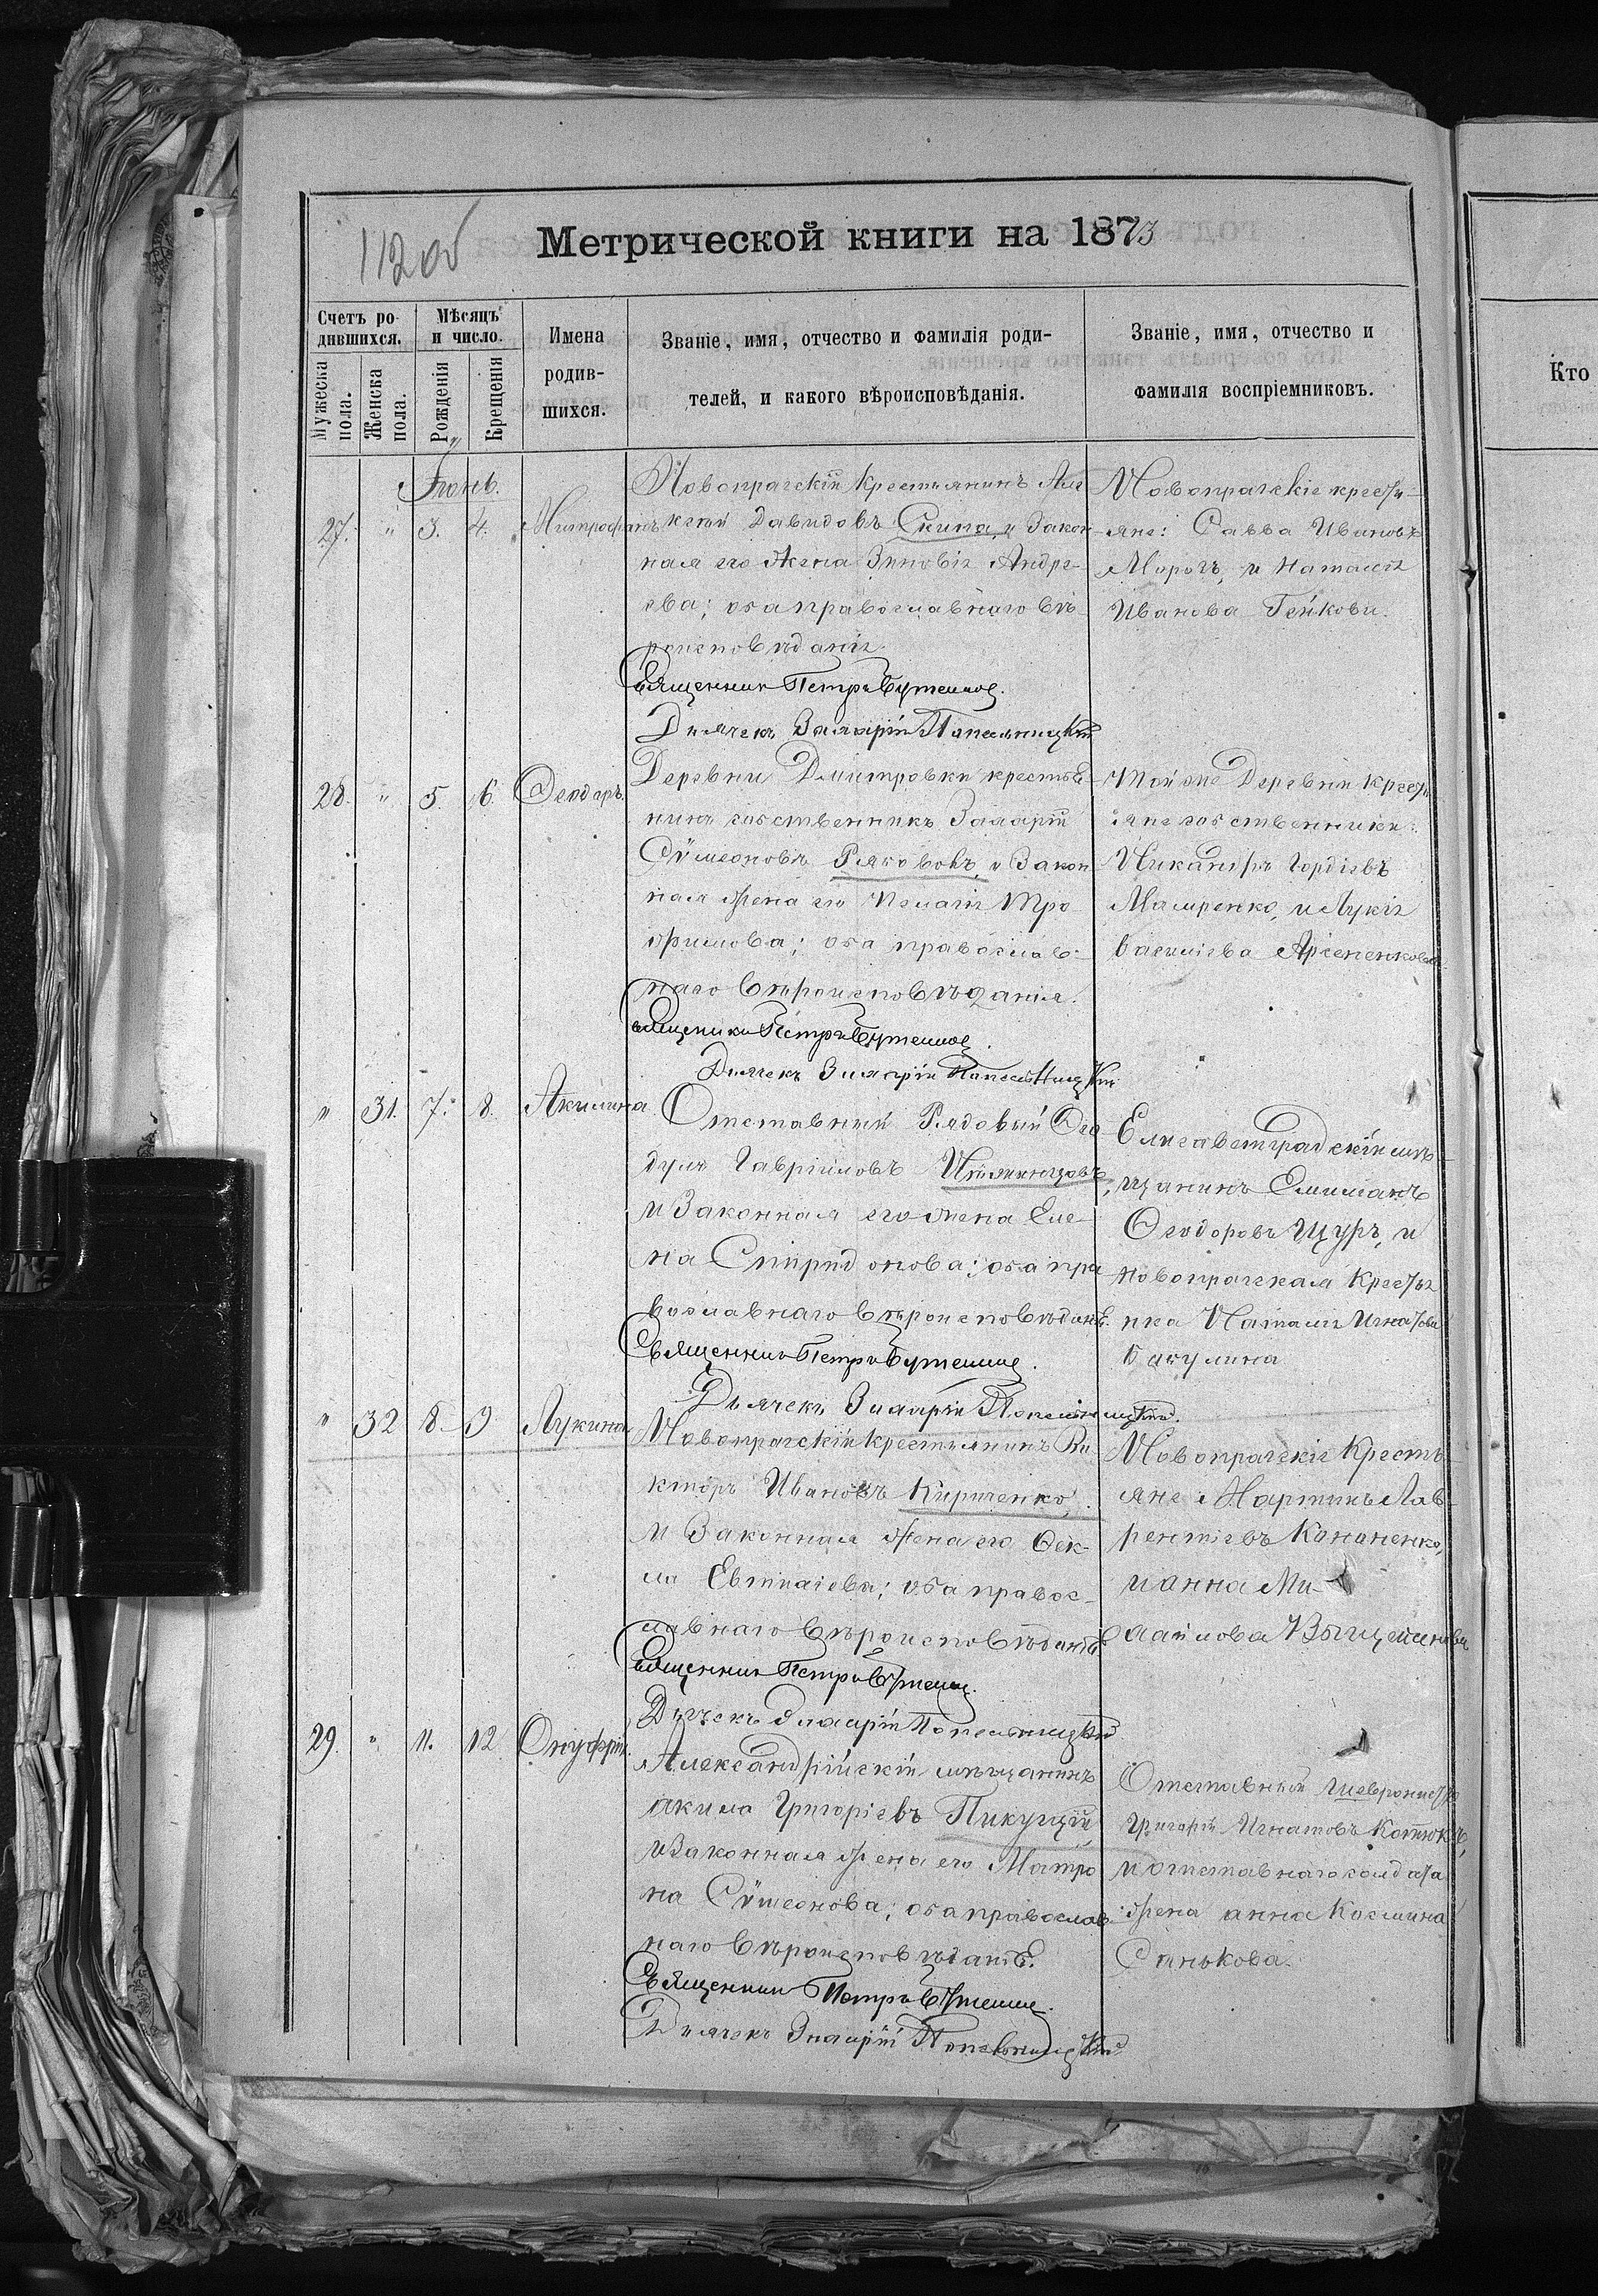 112об
Метрической книги на 1873
Счетъ родившихся.
Мужеска пола.
Женска пола.
Мѣсяцъ и число.
Рожденія
Крещенія
Имена родившихся.
Званіе, имя, отчество и фамилія родителей, и какого вѣроисповѣданія.
Званіе, имя, отчество и фамилія воспріемниковъ.
Кто
Іюнь.
27. " 3. 4. Митрофанъ
Новопрагскій крестьянинъ Але
ксѣй Давидовъ Скипа, и Закон
ная его жена Зиновія Андре-
ева; оба православнаго вѣ
роисповѣданія
Священникъ Петръ
Дьячекъ Иларій
Новопрагскіе кресть-
яне: Савва Ивановъ
Морозъ, и Наталія
Иванова Гейкова.
28. " 5. 6. Ѳеодоръ.
Деревни Дмитровки крестья
нинъ собственникъ Иларій
Сѵмеоновъ Рябовъ, и Закон
ная жена его Пелагія Тро
фимова; оба православ-
наго вѣроисповѣданія.
Священникъ Петръ
Дьячекъ Иларій
Той же Деревни кресть
яне собственники:
Никаноръ Гордіевъ
и Лукія
Василіева Арсененкова
" 31. 7. 8. Акилина
Отставный Рядовый Ѳео
дулъ Гавріиловъ
и Законная его жена Еле-
на Спиридонова; оба пра
вославнаго вѣроисповѣданія.
Священникъ Петръ
Дьячекъ Иларій
Елисаветградскій мѣ-
щанинъ Емиліанъ
Ѳеодоровъ Щуръ, и
Новопрагская Кресть
нка Наталія Игнатова
Бакулина
" 32 8 9 Лукина
Новопрагскій крестьянинъ Ви
кторъ Ивановъ Кириченко,
и Законная жена его Ѳек-
ла Евтихіева; оба правос-
лавнаго вѣроисповѣданія
Священникъ Петръ
Дьячекъ Иларій
Новопрагскіе Кресть
яне: Мартинъ Лав-
рентіевъ Кононенко,
и анна Ми-
хаилова
29. " 11. 12 Онуфрій.
Александрійскій мѣщанинъ
акила Григоріевъ Пикущій
и Законная жена его Матро
на Сѵмеонова; оба православ
наго вѣроисповѣданія.
Священникъ Петръ
Дьячекъ Иларій
Отставный
Григорій Игнатовъ Котюкъ,
и отставнаго солдата
жена анна Космина
Санькова.